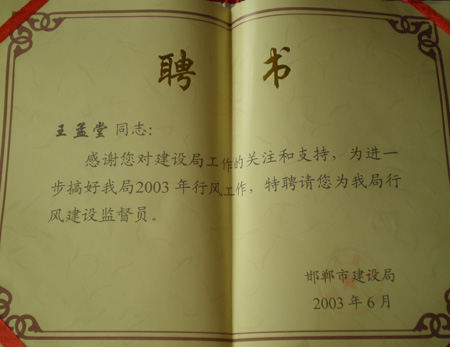 聘 书
王孟堂 同志:
感谢您对建设局工作的关注和支持，为进一
步搞好我局2003年行风工作，特聘请您为我局行
风建设监督员。
邯郸市建设局
2003年6月